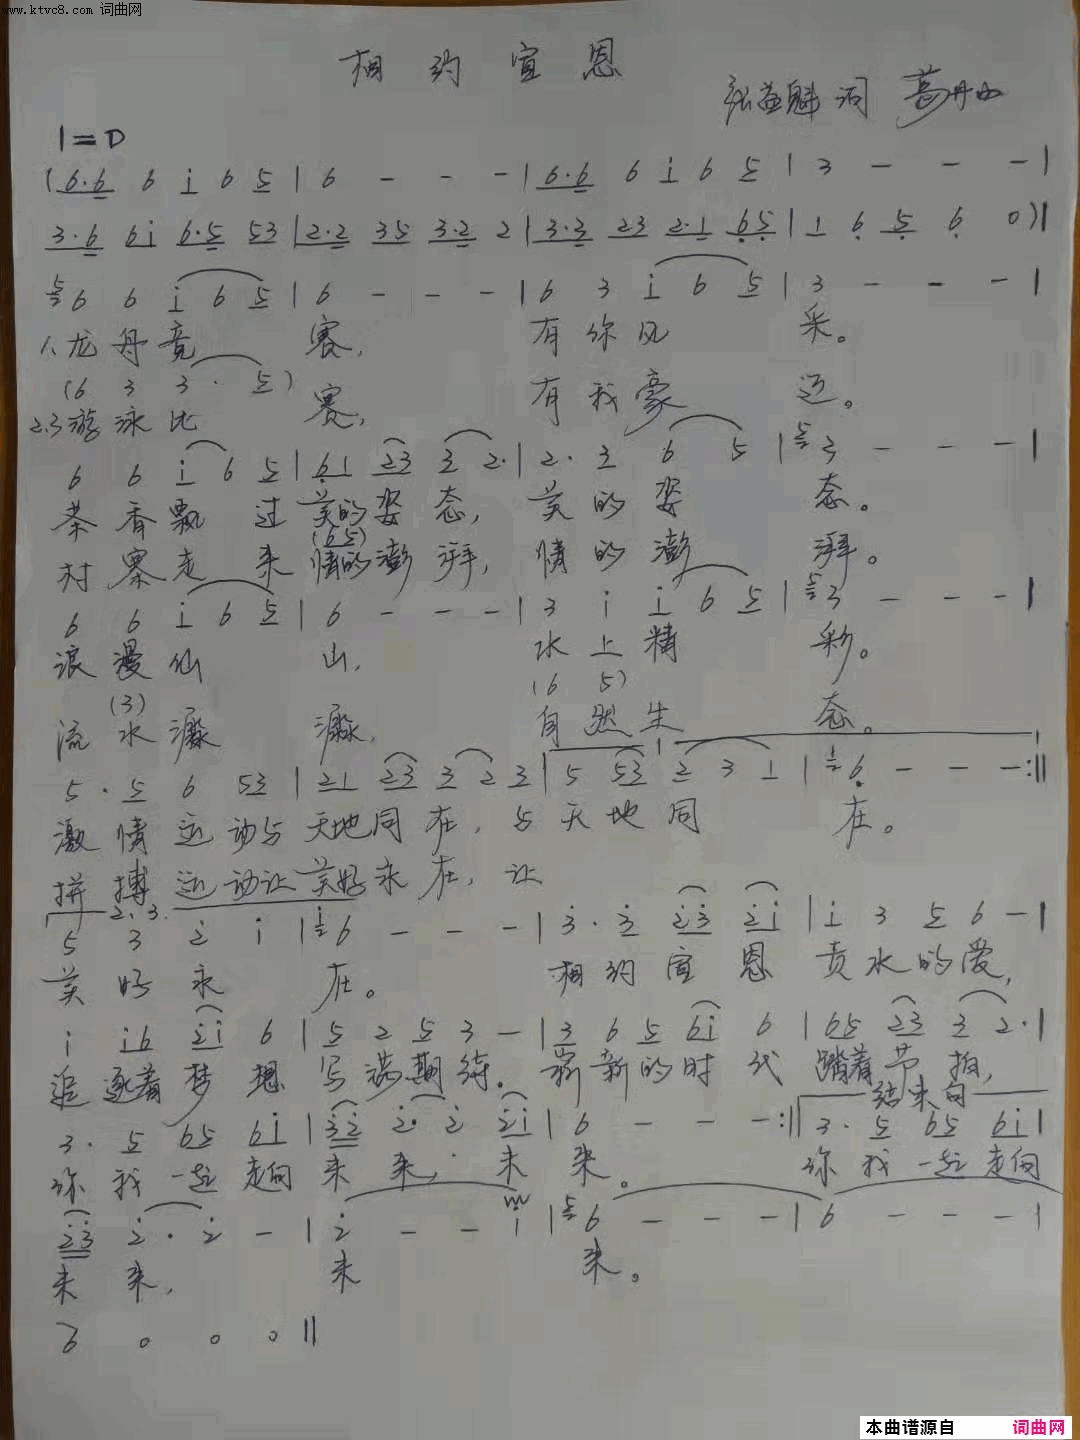 www.ktvc8.com 词曲网
相约宣恩
张益魁词 葛丹
1=D
(6·6 6 i 6 5 | 6 - - - | 6·6 6 i 6 5 | 3 - - - |
3·6 6i 6·5 53 | 2·2 35 3·2 2 | 3·3 23 2·1 65 | 1 6 5 6 0) |
5 6 6 i 6 5 | 6 - - - | 6 3 i 6 5 | 3 - - - |
1、龙舟竞 赛, 有你风 采。
(6 3 3· 5)
2.3游泳比 赛, 有我豪 迈。
6 6 i 6 5 | 61 23 3 2· | 2· 3 6 5 | 5 3 - - - |
茶香飘 过 美的姿 态, 美的姿 态。
(65)
村寨走 来 情的澎 湃, 情的澎 湃。
6 6 i 6 5 | 6 - - - | 3 i i 6 5 | 5 3 - - - |
浪漫仙 山, 水上精 彩。
(3) (6 5)
流水潺 潺, 自然生 态。
1
5· 5 6 53 | 21 23 3 2 3 | 5 53 2 3 1 | 1 6 - - - :||
激情运动与天地同在, 与天地同 在。
拼搏运动让美好永在, 让
2、3.
5 3 2 i | i 6 - - - | 3· 3 23 2i | i 3 5 6 - |
美好永 在。 相约宣恩 贡水的爱,
i i6 2i 6 | 5 2 5 3 - | 3 6 5 6i 6 | 65 23 3 2· |
追逐着梦想 写满期待. 崭新的时代 踏着节拍,
结束句
3· 5 65 6i | 32 2· 2 2i | 6 - - - :|| 3· 5 65 6i |
你我一起走向未来, 未 来。 你我一起走向
23 2· 2 - | 2 - - i | 5 6 - - - | 6 - - - |
未来, 未 来。
6 0 0 0 ||
本曲谱源自 词曲网